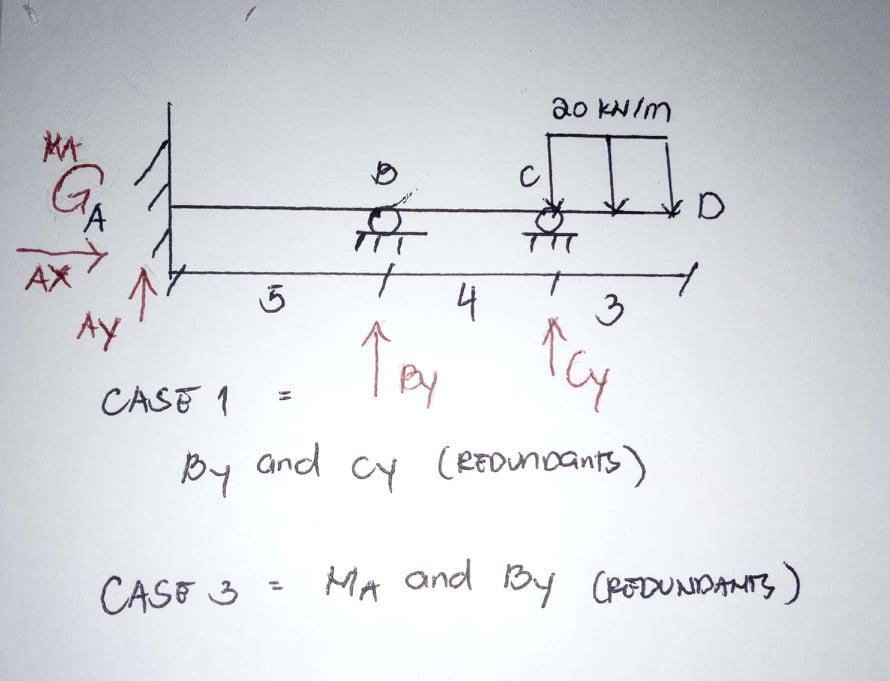 20 kN/m
MA
B
C
D
A
AX
5
4
3
Ay
By
Cy
CASE 1 =
By and Cy (REDUNDANTS)
CASE 3 = MA and By (REDUNDANTS)